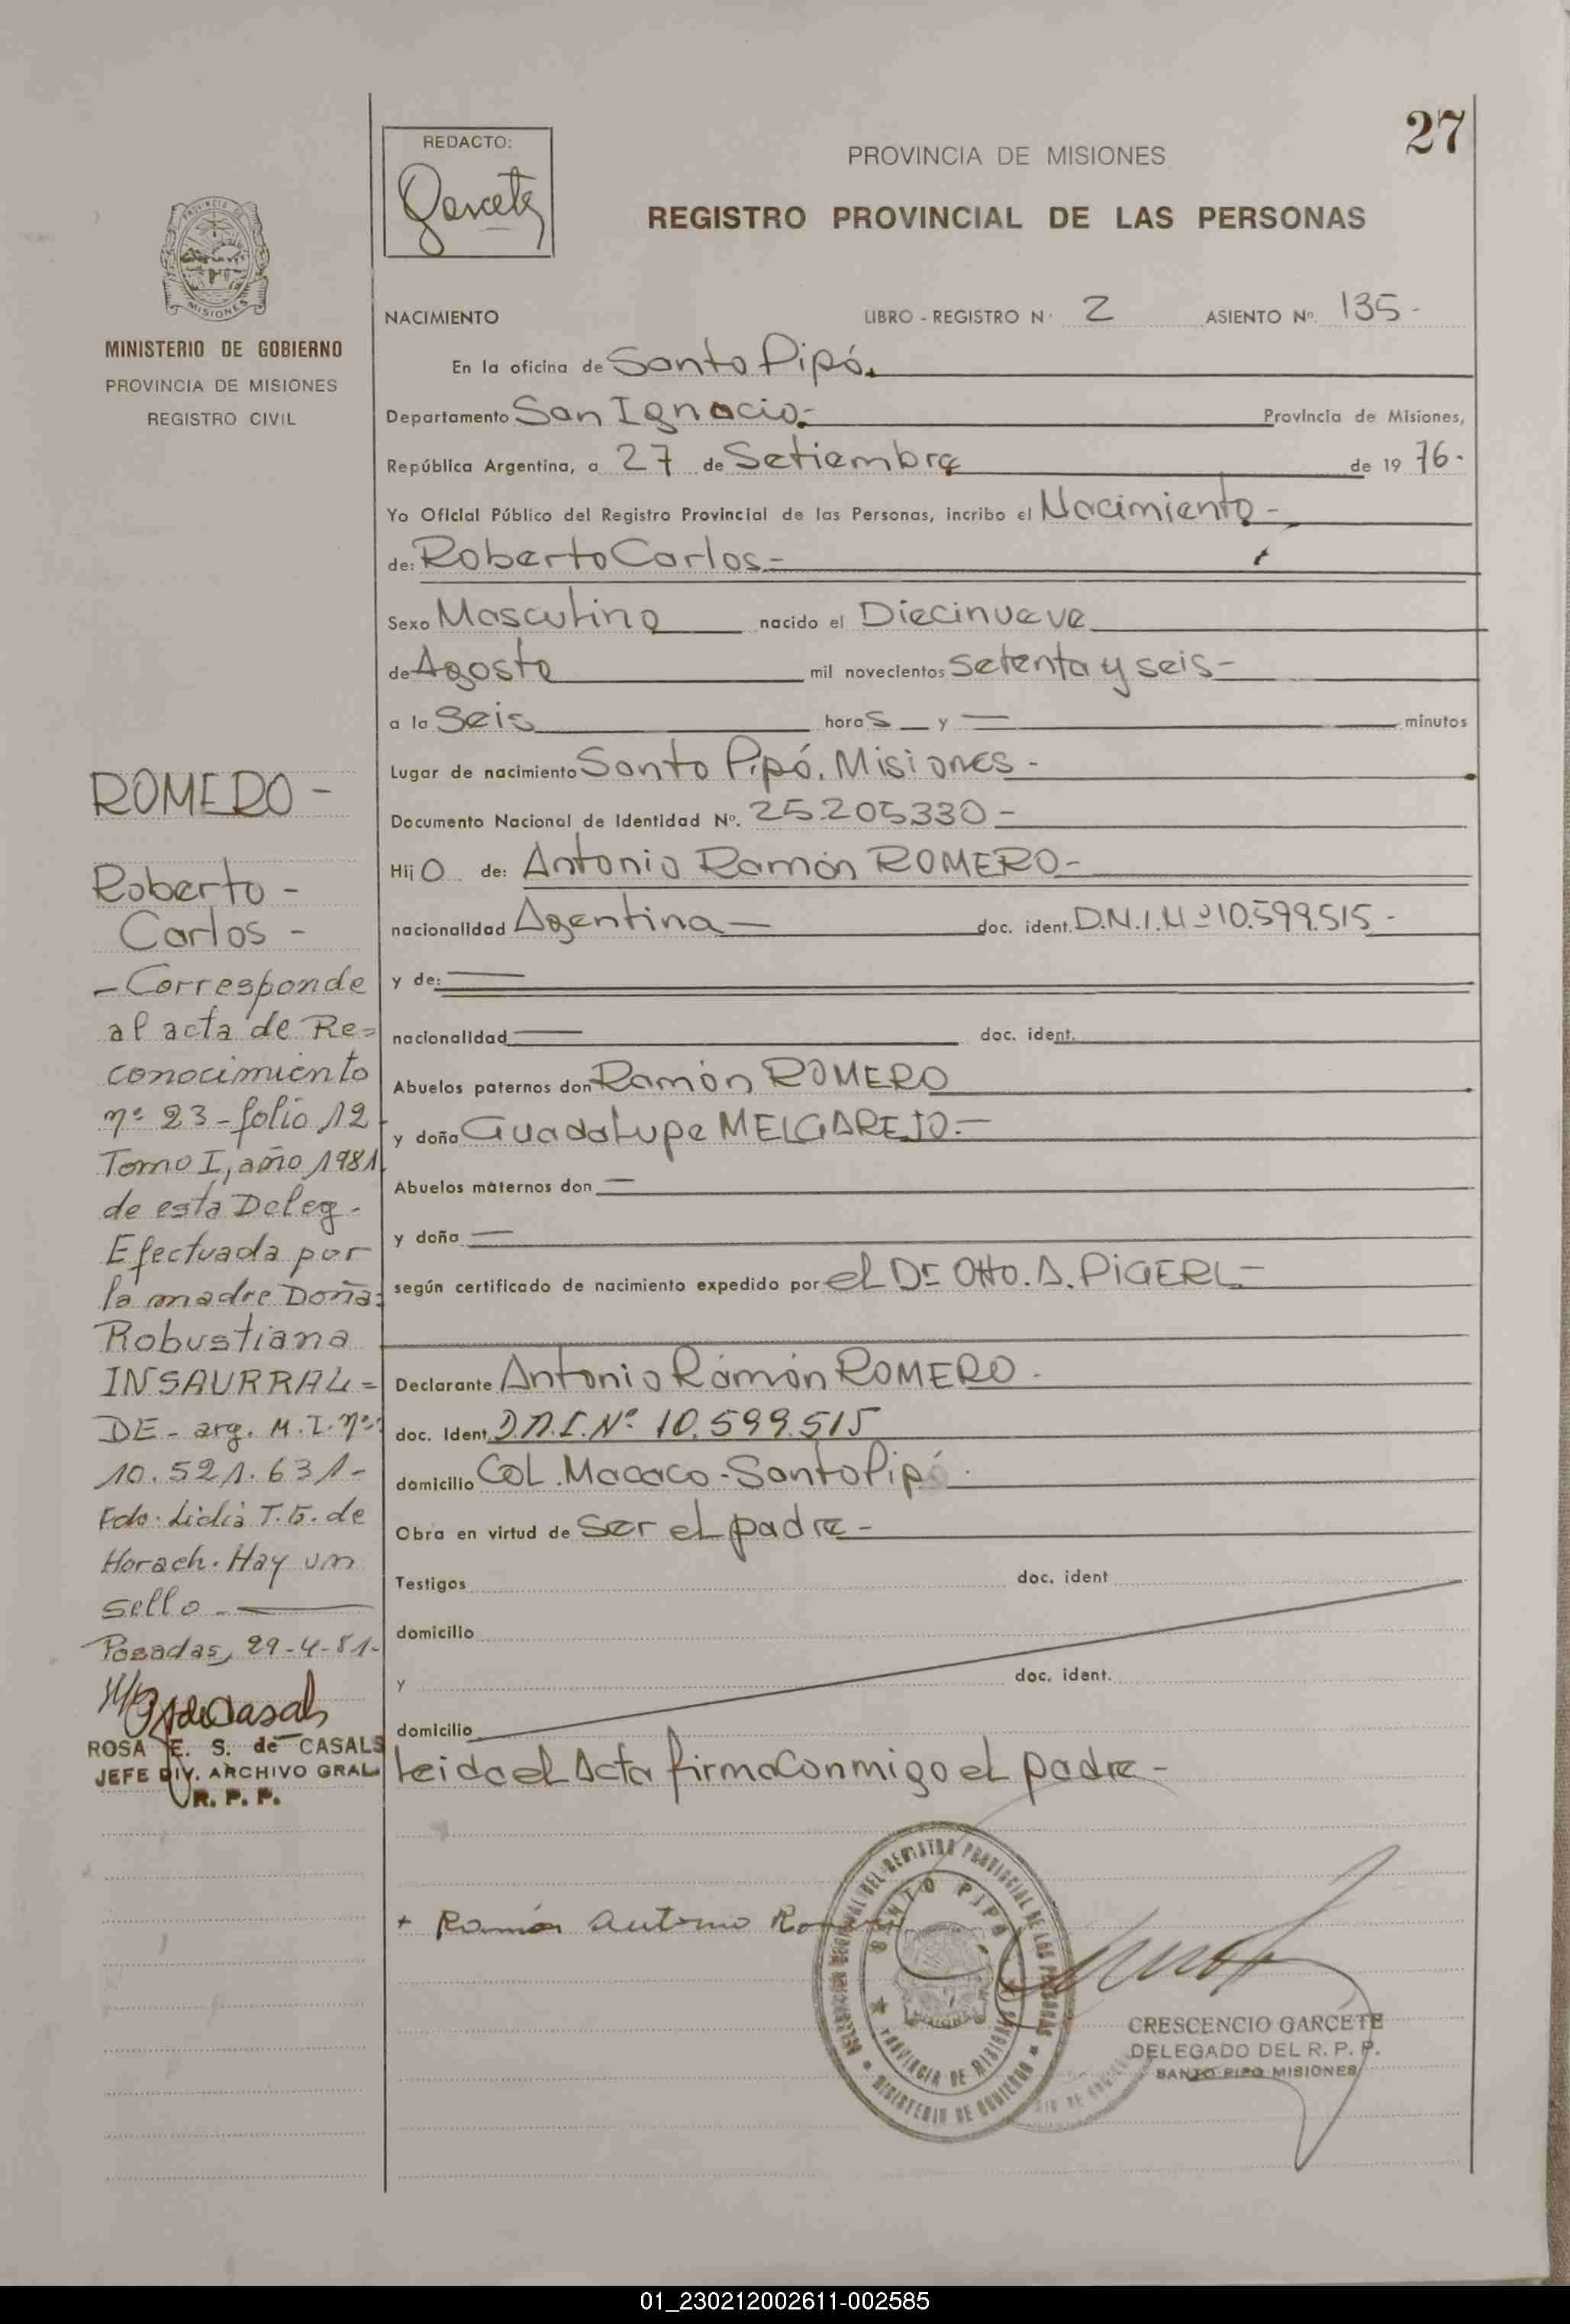 27
REDACTO:
Garcete
PROVINCIA DE MISIONES
REGISTRO PROVINCIAL DE LAS PERSONAS
PROVINCIA DE
MISIONES
MINISTERIO DE GOBIERNO
PROVINCIA DE MISIONES
REGISTRO CIVIL
NACIMIENTO LIBRO - REGISTRO Nº 2 ASIENTO Nº 135-
En la oficina de Santo Pipó.
Departamento San Ignacio- Provincia de Misiones,
República Argentina, a 27 de Setiembre de 19 76-
Yo Oficial Público del Registro Provincial de las Personas, incribo el Nacimiento-
de: Roberto Carlos-
Sexo Masculino nacido el Diecinueve
de Agosto mil novecientos setenta y seis-
a la Seis horas y — minutos
Lugar de nacimiento Santo Pipó. Misiones-
Documento Nacional de Identidad Nº. 25.205330-
Hijo de: Antonio Ramón ROMERO-
nacionalidad Agentina- doc. ident. D.N.I.Nº10.599.515-
y de: —
nacionalidad — doc. ident.
Abuelos paternos don Ramón ROMERO
y doña Guadalupe MELGAREJO.-
Abuelos maternos don —
y doña —
según certificado de nacimiento expedido por el Dr Otto. A. PIGERL-
Declarante Antonio Ramón ROMERO.
doc. Ident. D.N.I.Nº 10.599.515
domicilio Col. Macaco-Santo Pipó.
Obra en virtud de ser el padre-
Testigos doc. ident
domicilio
y doc. ident.
domicilio
Leida el Acta firma conmigo el padre-
+ Ramón Antonio Romero
DELEGACION REGIONAL DEL REGISTRO PROVINCIAL DE LAS PERSONAS
SANTO PIPO
MISIONES
PROVINCIA DE MISIONES
MINISTERIO DE GOBIERNO
CRESCENCIO GARCETE
DELEGADO DEL R. P. P.
SANTO PIPO MISIONES
ROMERO-
Roberto-
Carlos-
-Corresponde
al acta de Re=
conocimiento
nº 23-folio 12
Tomo I, año 1981
de esta Deleg-
Efectuada por
la madre Doña:
Robustiana
INSAURRAL=
DE- arg. M.I.nº:
10.521.631-
Fdo. Lidia T. G. de
Horach. Hay un
sello.-
Posadas, 29-4-81-
ROSA E. S. de CASALS
JEFE DIV. ARCHIVO GRAL
R. P. P.
01_230212002611-002585